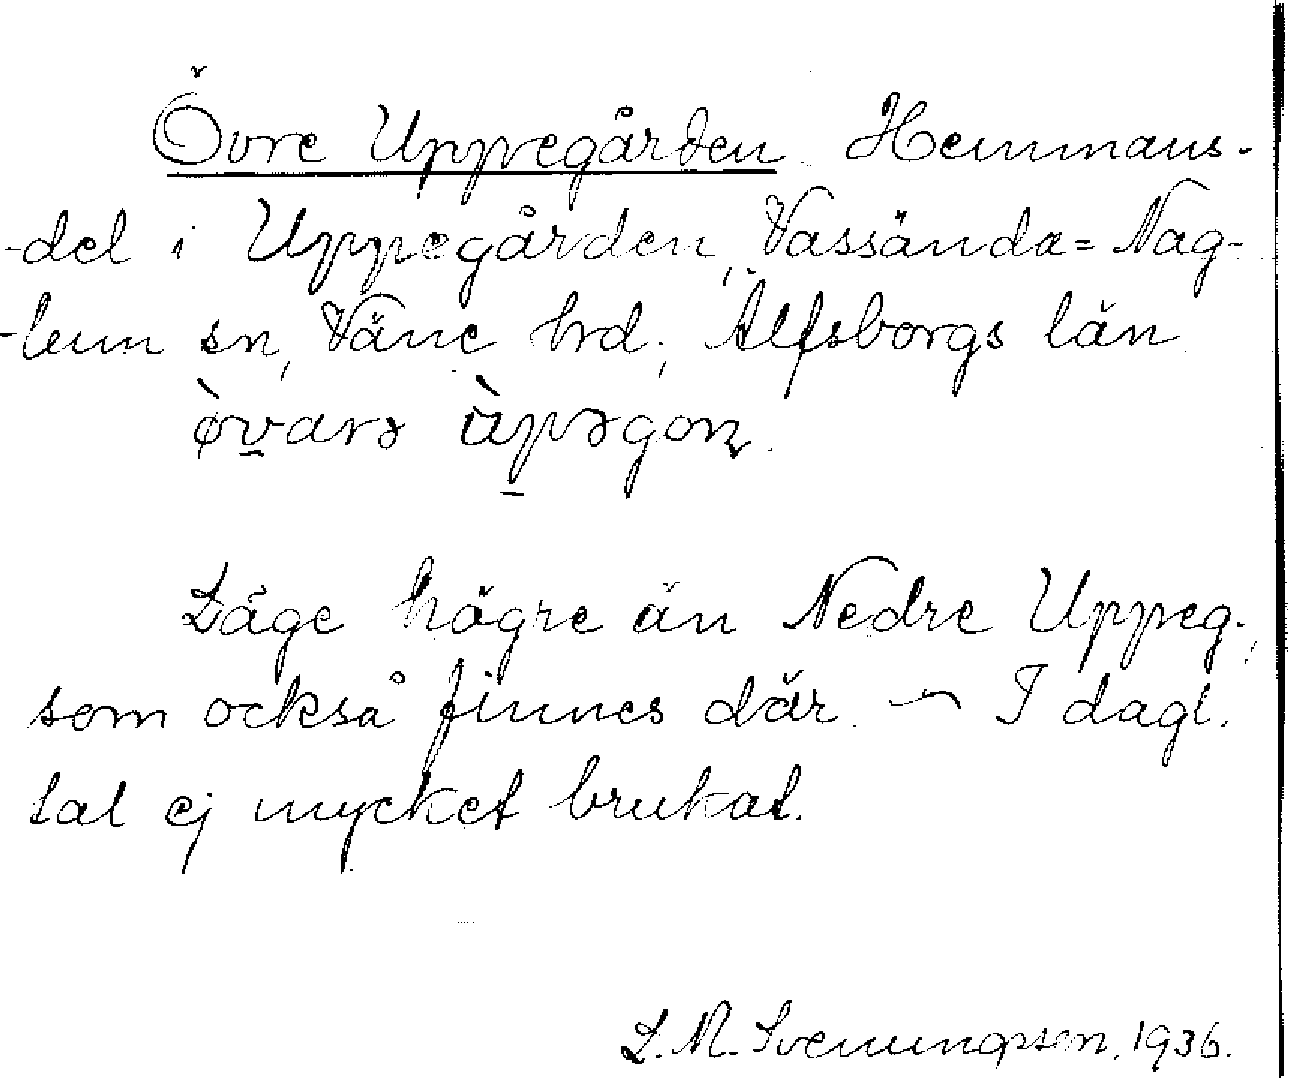 Övre Uppegården Hemmans-
-del i Uppegården, Vassända=Nag-
-lum sn, Väne hrd., Älfsborgs län.
ò̀varə ùpəgoɳ.
Läge högre än Nedre Uppeg.,
som också finnes där. — I dagl.
tal ej mycket brukat.
L. M. Svenungsson, 1936.